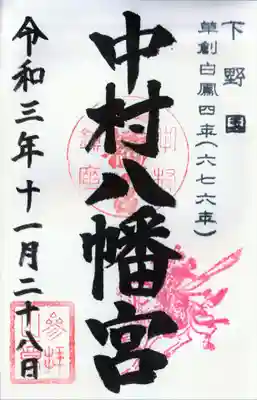 下野国
草創白鳳四年(六七六年)
中村八幡宮
令和三年十一月二十八日
参拝